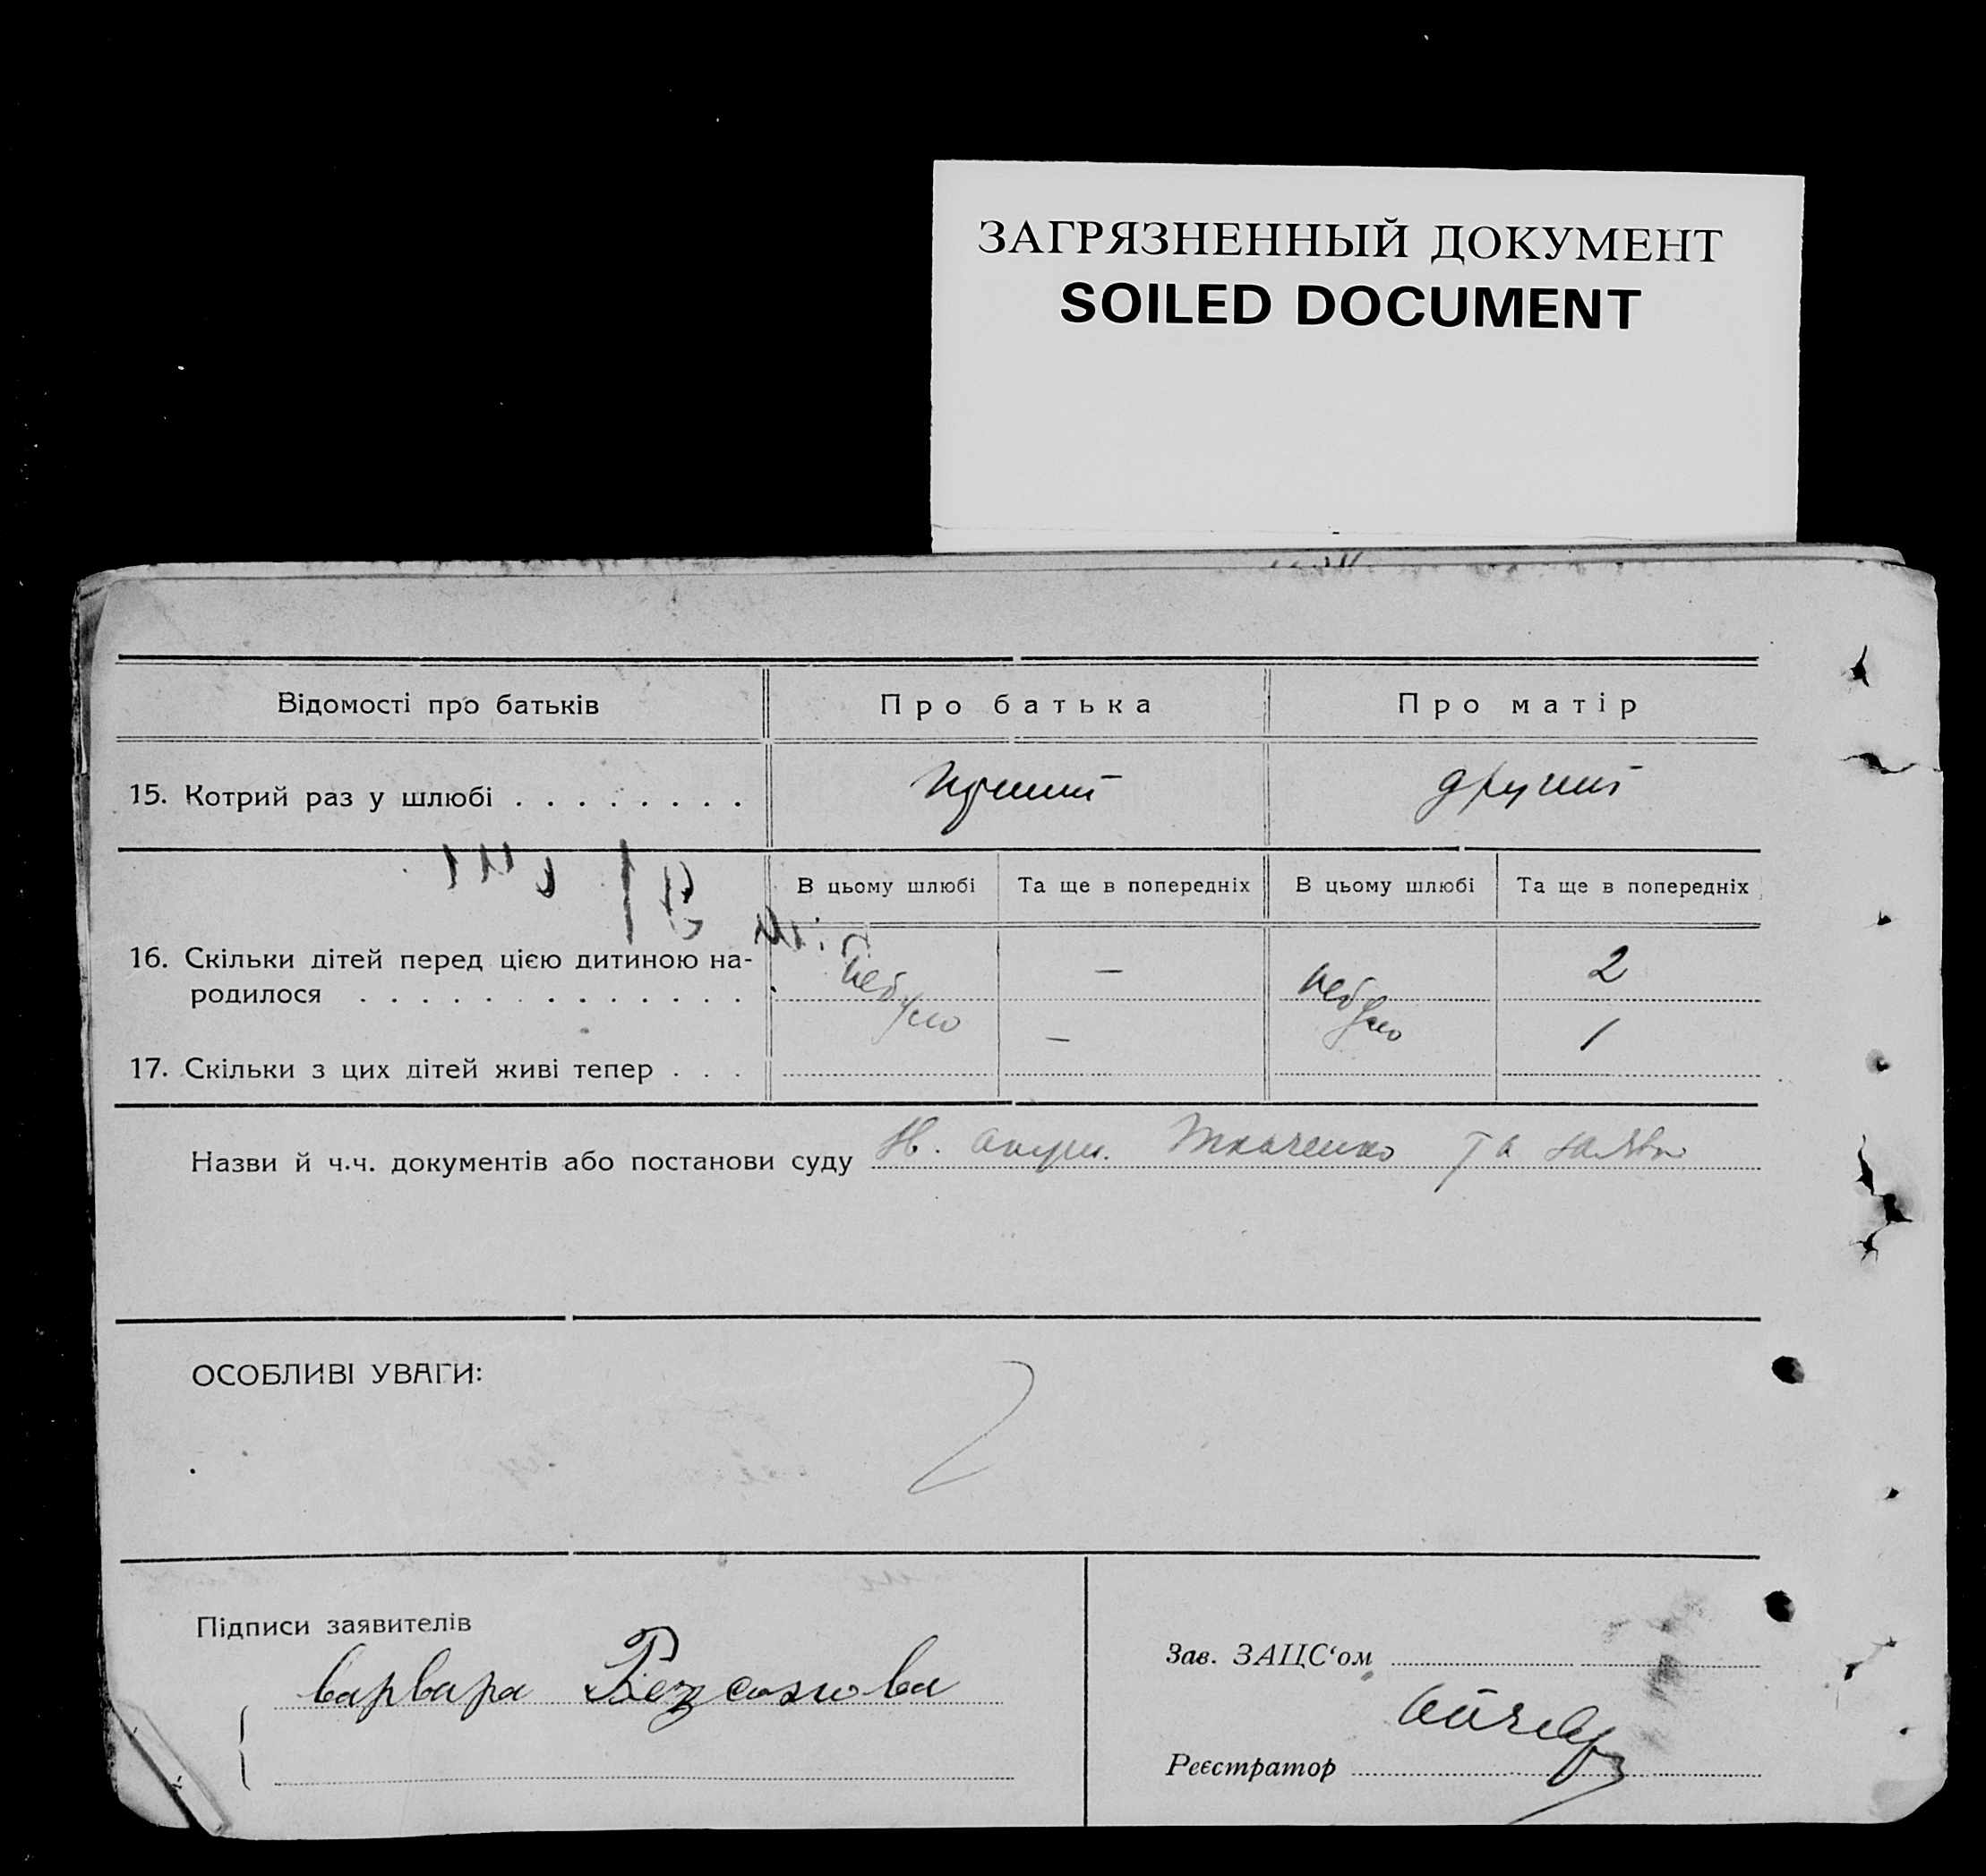 ЗАГРЯЗНЕННЫЙ ДОКУМЕНТ
SOILED DOCUMENT
Відомості про батьків Про батька Про матір
15. Котрий раз у шлюбі . . . . . . . . другий
В цьому шлюбі Та ще в попередніх В цьому шлюбі Та ще в попередніх
16. Скільки дітей перед цією дитиною на-
родилося . . . . . . . . . . . . . небуло — небуло 2
17. Скільки з цих дітей живі тепер . . . — 1
Назви й ч.ч. документів або постанови суду акуш. Ткаченко та заява
ОСОБЛИВІ УВАГИ:
Підписи заявителів
Варвара
Зав. ЗАЦС‘ом
Реєстратор